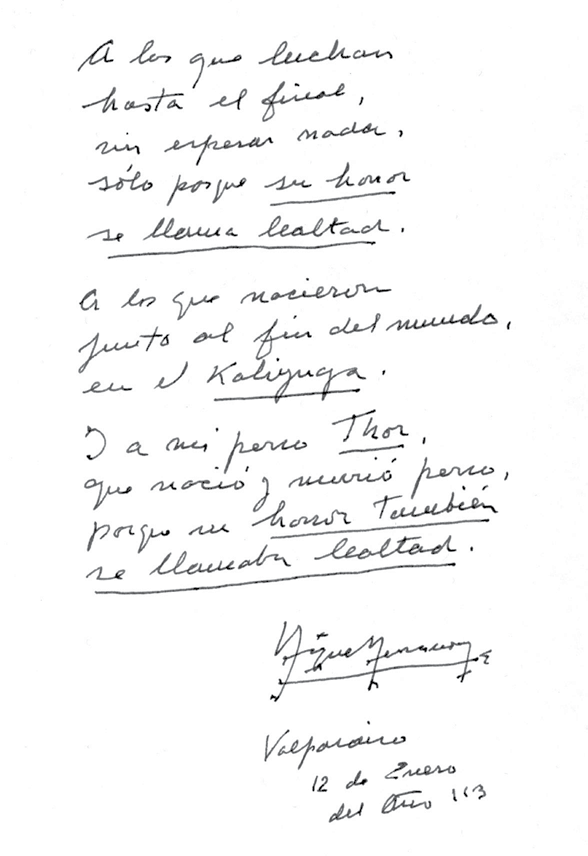 A los que luchan
hasta el final,
sin esperar nada,
sólo porque su honor
se llama lealtad.
A los que nacieron
junto al fin del mundo,
en el Kaliyuga.
I a mi perro Thor,
que nació y murió perro,
porque su honor también
se llamaba lealtad.
Valparaíso
12 de Enero
del Año 113